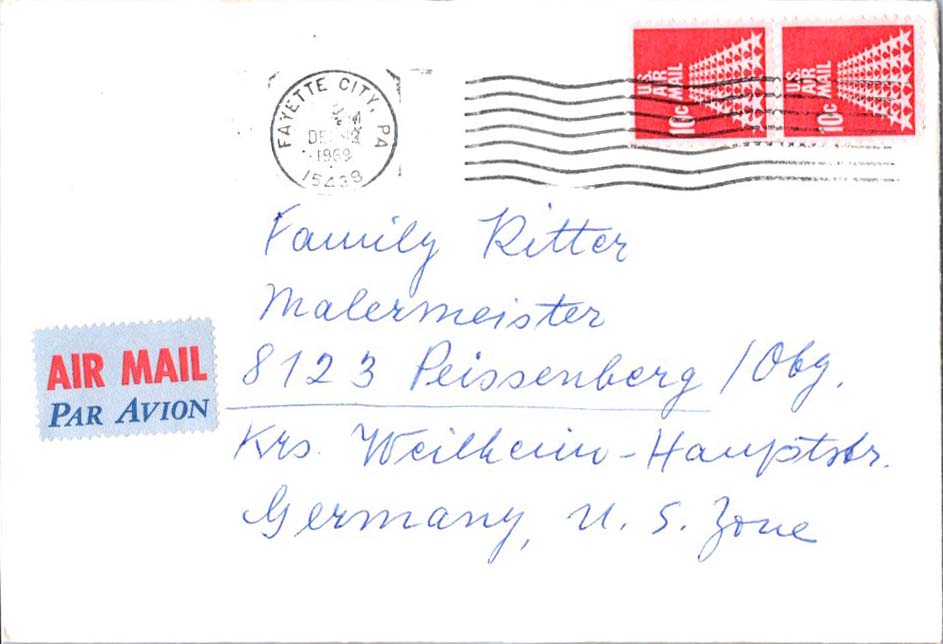 FAYETTE CITY, PA
1969
15438
U.S. AIR MAIL 10c
U.S. AIR MAIL 10c
Family Ritter
Malermeister
8123 Peissenberg / Obg.
AIR MAIL
PAR AVION
Krs. Weilheim - Hauptstr.
Germany, U. S. Zone